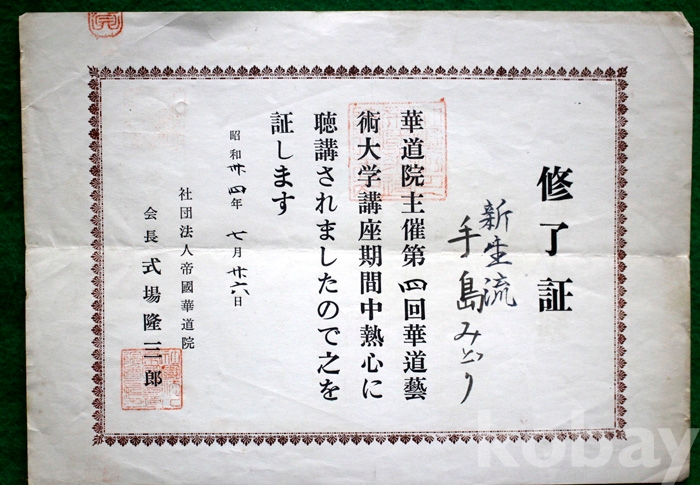 修了証
新生流
手島みどり
華道院主催第四回華道藝
術大学講座期間中熱心に
聴講されましたので之を
証します
昭和卅四年七月廿六日
社団法人帝國華道院
会長式場隆三郎
kobay